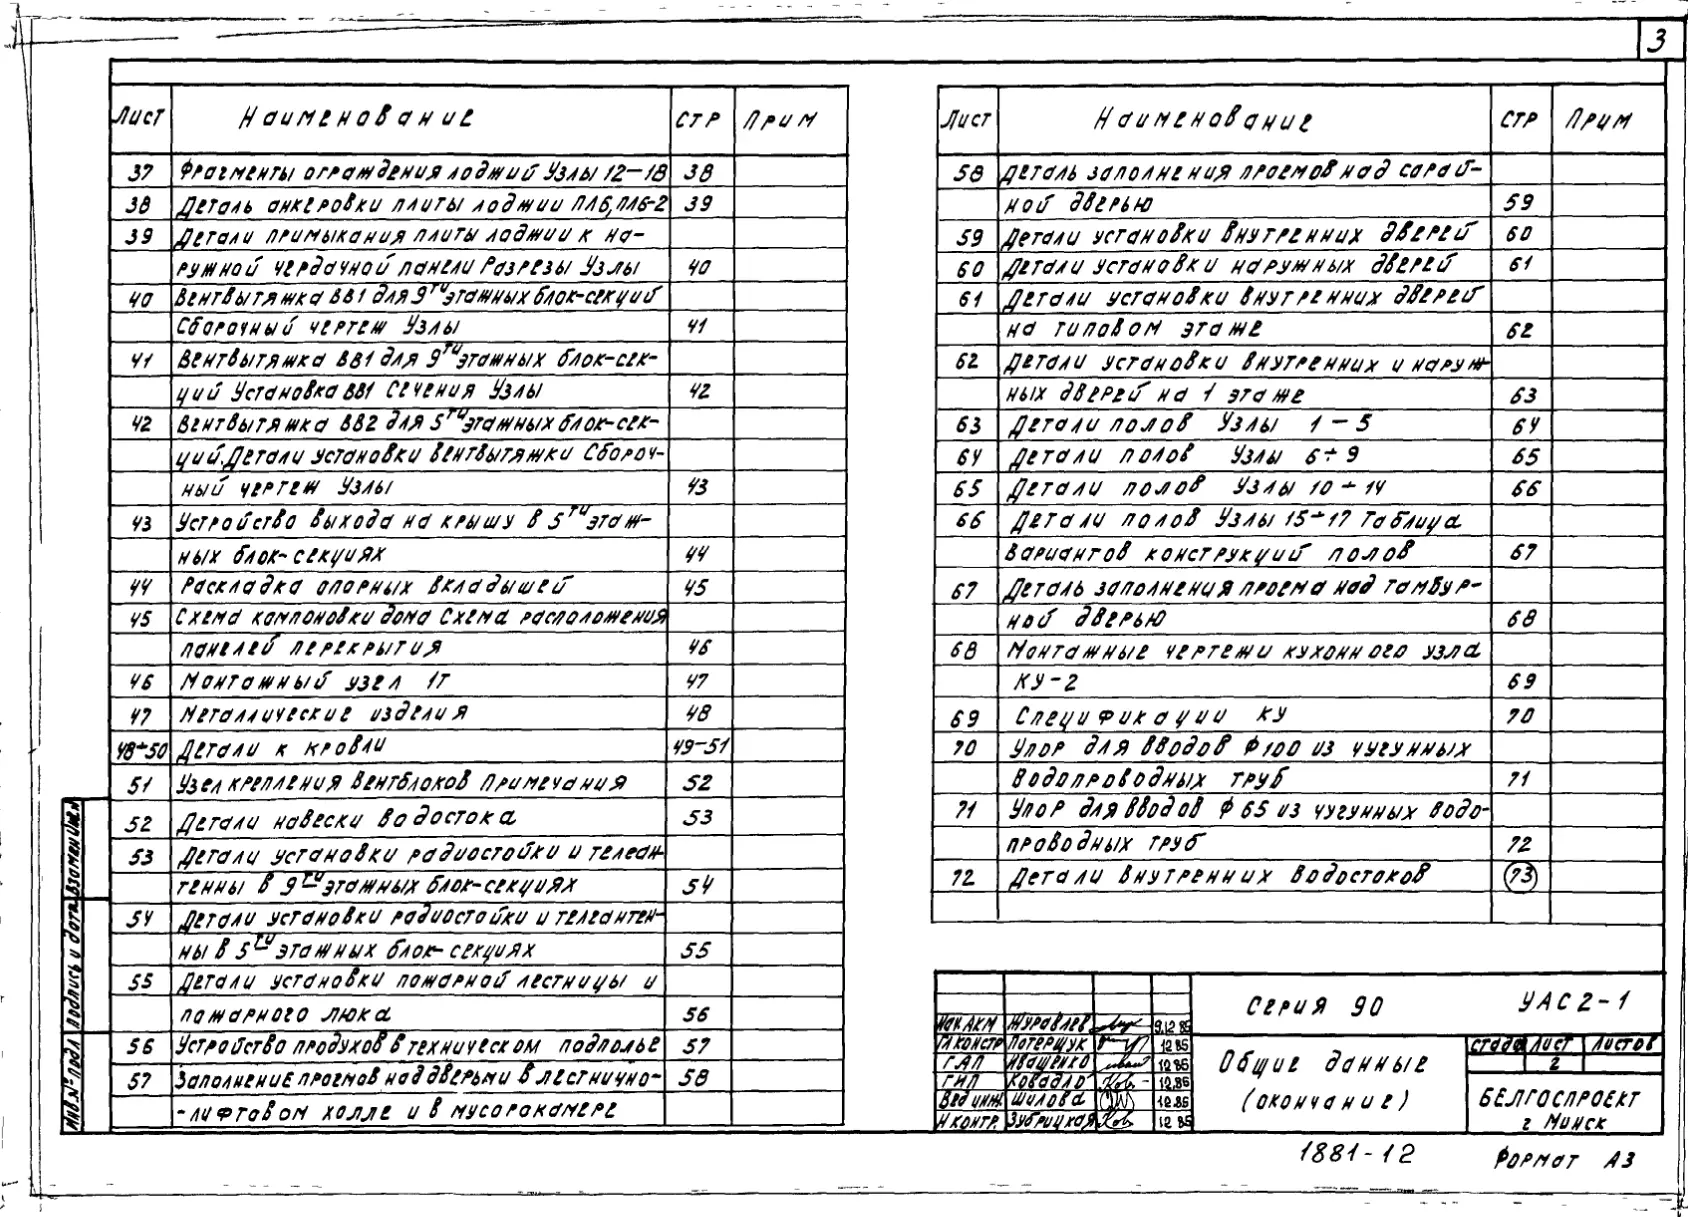 3
Лист Наименование стр Прим
37 Фрагменты ограждения лоджий Узлы 12–18 38
38 Деталь анкеровки плиты лоджии ПЛ6, ПЛ6-2 39
39 Детали примыкания плиты лоджии к на-
ружной чердачной панели Разрезы Узлы 40
40 Вентвытяжка ВВ1 для 9ти этажных блок-секций
Сборочный чертеж Узлы 41
41 Вентвытяжка ВВ1 для 9ти этажных блок-сек-
ций Установка ВВ1 Сечения Узлы 42
42 Вентвытяжка ВВ2 для 5ти этажных блок-сек-
ций. Детали установки вентвытяжки Сбороч-
ный чертеж Узлы 43
43 Устройство выхода на крышу в 5ти этаж-
ных блок-секциях 44
44 Раскладка опорных вкладышей 45
45 Схема компоновки дома Схема расположения
панелей перекрытия 46
46 Монтажный узел 1т 47
47 Металлические изделия 48
48÷50 Детали к кровли 49-51
51 Узел крепления вентблоков Примечания 52
52 Детали навески водостока 53
53 Детали установки радиостойки и телеан-
тенны в 9ти этажных блок-секциях 54
54 Детали установки радиостойки и телеантен-
ны в 5ти этажных блок-секциях 55
55 Детали установки пожарной лестницы и
пожарного люка 56
56 Устройство продухов в техническом подполье 57
57 Заполнение проемов над дверьми в лестнично- 58
-лифтовом холле и в мусорокамере
Лист Наименование стр Прим
58 Деталь заполнения проемов над сарай-
ной дверью 59
59 Детали установки внутренних дверей 60
60 Детали установки наружных дверей 61
61 Детали установки внутренних дверей
на типовом этаже 62
62 Детали установки внутренних и наруж-
ных дверей на 1 этаже 63
63 Детали полов Узлы 1 – 5 64
64 Детали полов Узлы 6÷9 65
65 Детали полов Узлы 10÷14 66
66 Детали полов Узлы 15÷17 Таблица
вариантов конструкций полов 67
67 Деталь заполнения проема над тамбур-
ной дверью 68
68 Монтажные чертежи кухонного узла
КУ-2 69
69 Спецификации КУ 70
70 Упор для вводов Ф100 из чугунных
водопроводных труб 71
71 Упор для вводов Ф 65 из чугунных водо-
проводных труб 72
72 Детали внутренних водостоков 73
Инв.№ подл Подпись и дата Взамен инв.№
Нач.АКМ Журавлев 9.12 85
Гл констр Потерщук 12 85
ГАП Иващенко 12 85
ГИП Ковадло 12.85
Вед инж. Шилова 12.85
Н контр. Зубрицкая 12 85
Серия 90 УАС2-1
Общие данные
(окончание)
стадия Лист Листов
2
БЕЛГОСПРОЕКТ
г Минск
1881-12 Формат А3